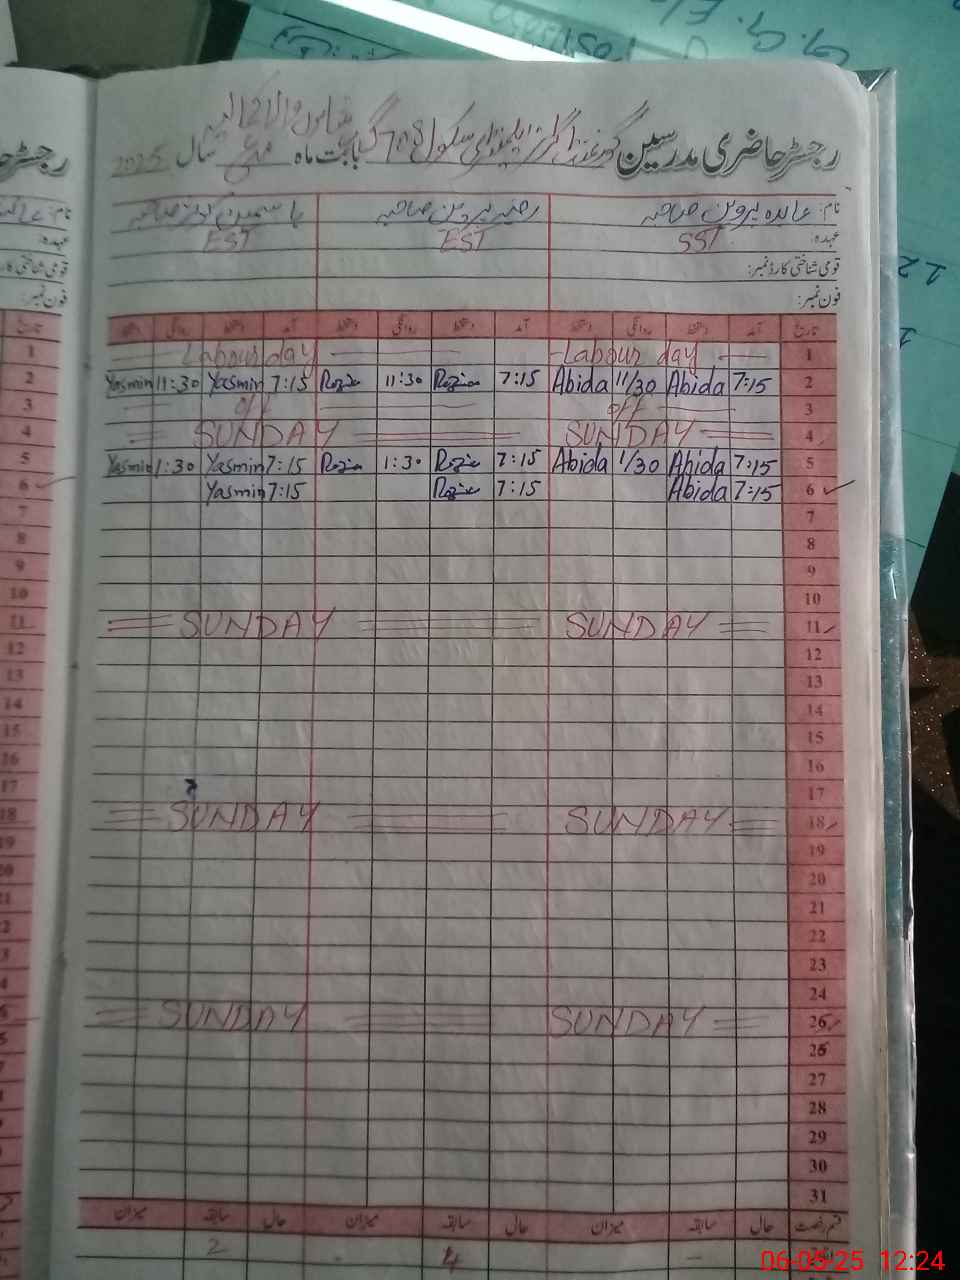 رجسٹر حاضری مدرسین گورنمنٹ گرلز ایلیمنٹری سکول 708 گ ب بابت ماہ مئی سال 2025
نام: عابدہ پروین صاحبہ رضیہ پروین صاحبہ یاسمین کوثر صاحبہ
عہدہ: SST EST EST
قومی شناختی کارڈ نمبر:
فون نمبر:
تاریخ آمد دستخط روانگی دستخط آمد دستخط روانگی دستخط آمد دستخط روانگی دستخط
1 Labour day Labour day
2 7:15 Abida 11/30 Abida 7:15 Rozia 11:30 Rozia 7:15 Yasmin 11:30 Yasmin
3 off off
4 SUNDAY SUNDAY
5 7:15 Abida 1/30 Abida 7:15 Rozia 1:30 Rozia 7:15 Yasmin 1:30 Yasmin
6 7:15 Abida 7:15 Rozia 7:15 Yasmin
7
8
9
10
11 SUNDAY SUNDAY
12
13
14
15
16
17
18 SUNDAY SUNDAY
19
20
21
22
23
24
26 SUNDAY SUNDAY
25
27
28
29
30
31
قسم رخصت حال سابقہ میزان حال سابقہ میزان حال سابقہ میزان
4 2
06-05-25 12:24